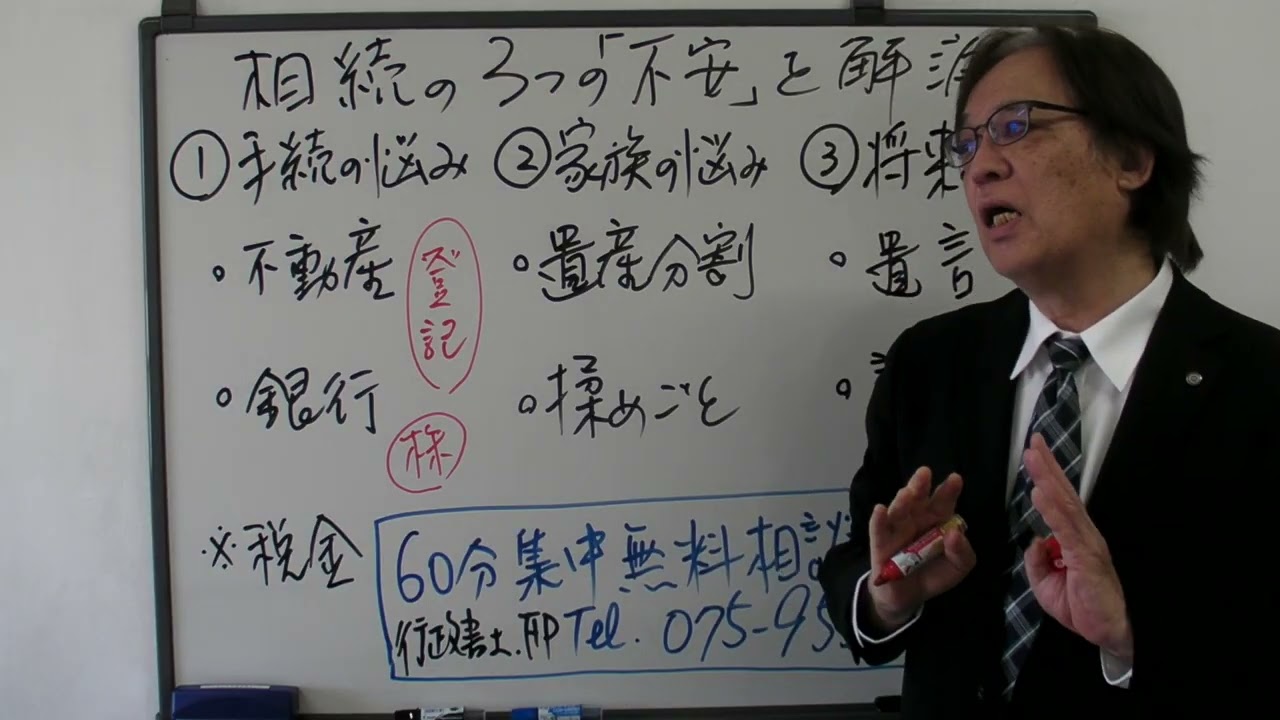 相続の3つの「不安」を解消
①手続の悩み ②家族の悩み ③将来
・不動産 登記 ・遺産分割 ・遺言
・銀行 株 ・揉めごと ・
※税金
60分集中無料相談
行政書士.FP Tel. 075-95